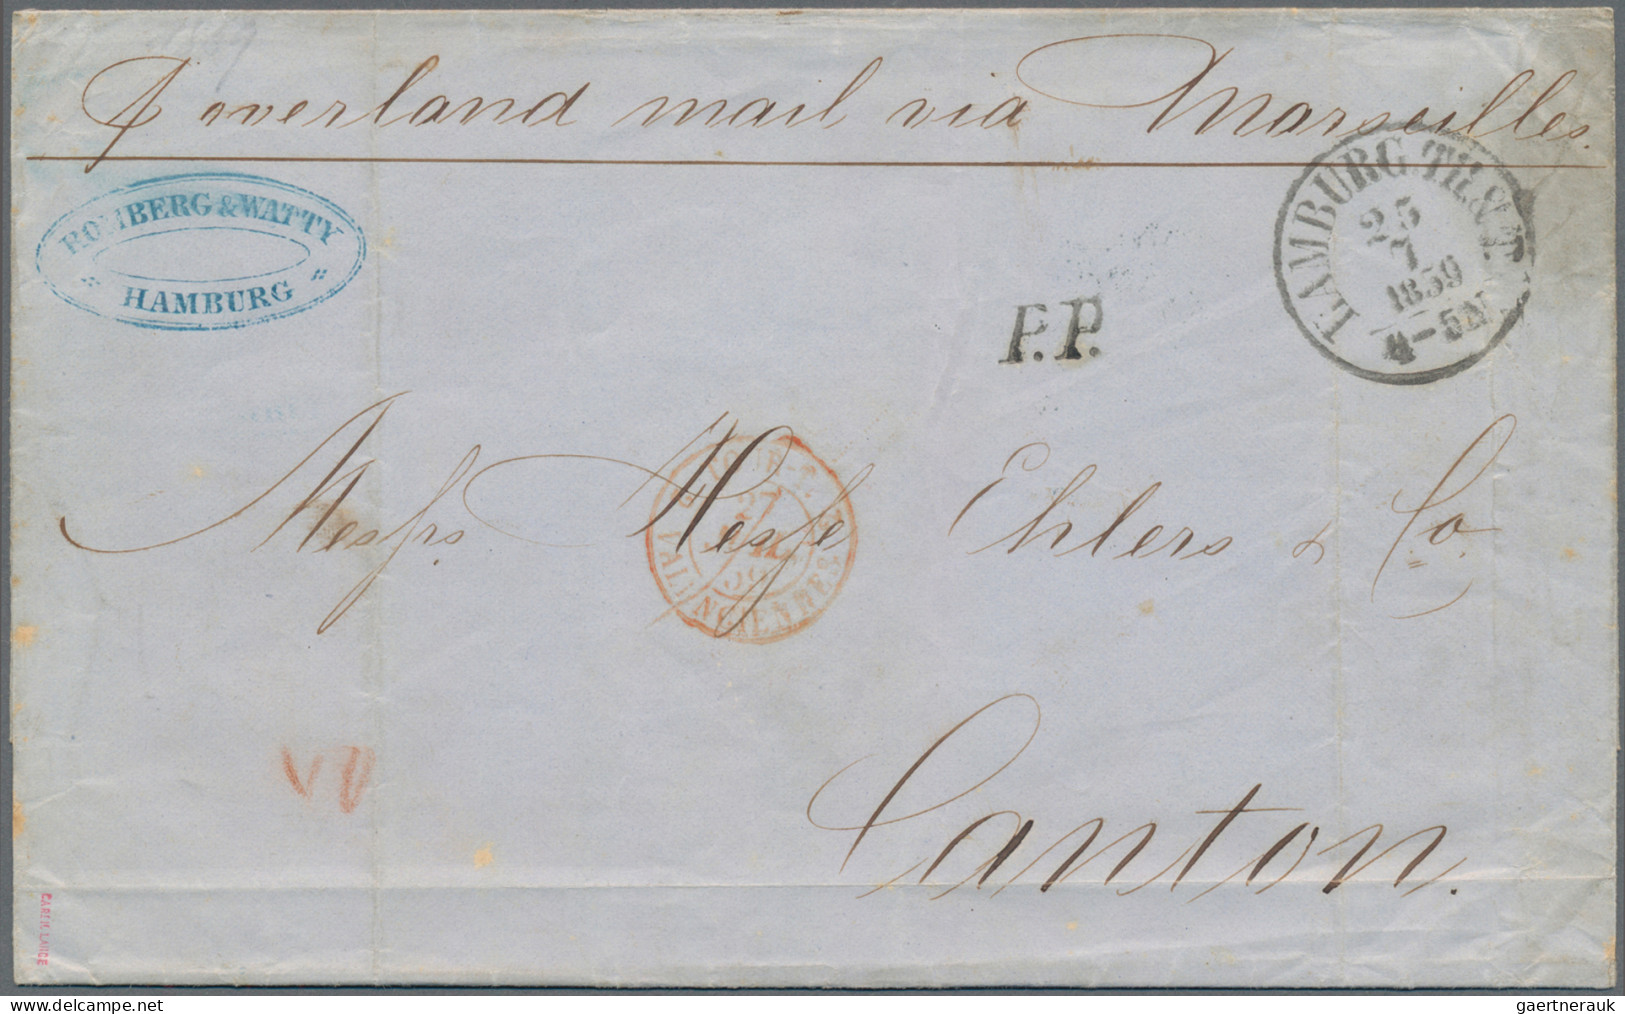 overland mail via Marseilles.
ROMBERG & WATTY
HAMBURG
HAMBURG TH.
25
7
1859
4-5N
P.P.
Messrs Hesse Ehlers & Co.
27
VALENCIENNES
Canton.
CARFK LANGE
delcampe.net
gaertnerauk